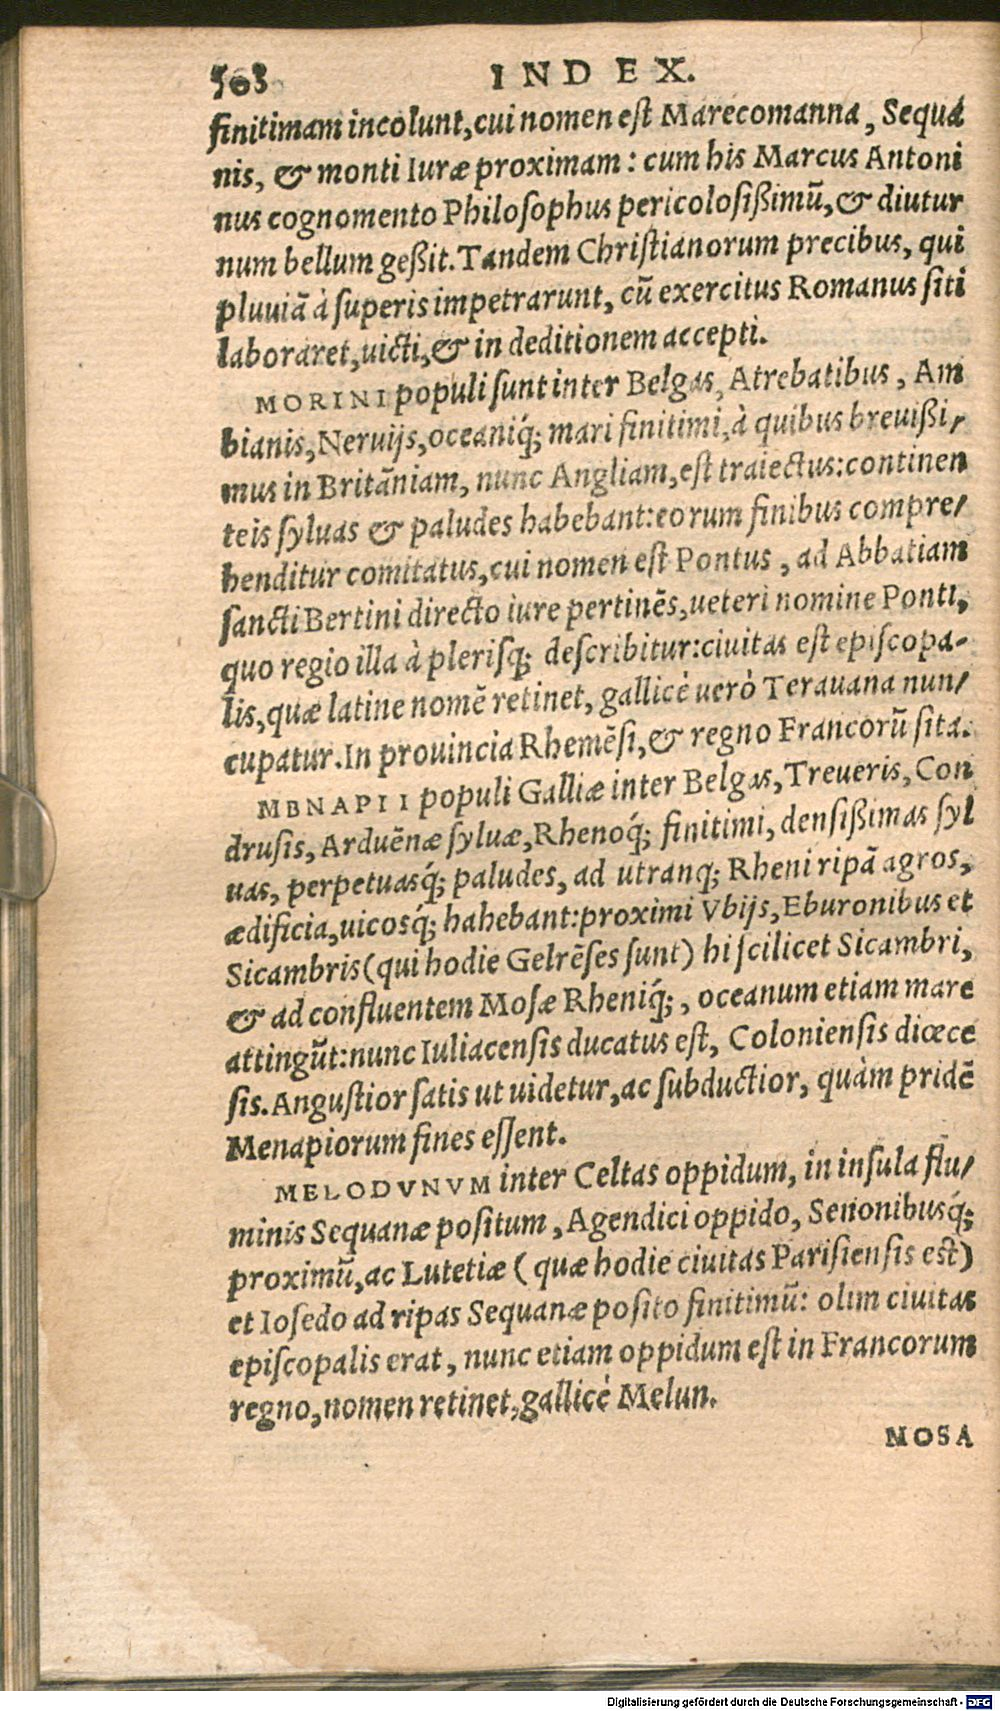 503 INDEX.
finitimam incolunt,cui nomen eſt Marecomanna, Sequá
nis, & monti Iuræ proximam: cum his Marcus Antoni
nus cognomento Philoſophus pericoloſißimū,& diutur
num bellum geßit.Tandem Chriſtianorum precibus, qui
pluuiā à ſuperis impetrarunt, cū exercitus Romanus ſiti
laboraret,uicti,& in deditionem accepti.
MORINI populi ſunt inter Belgas, Atrebatibus, Am
bianis,Neruijs,oceaniq́; mari finitimi,à quibus breuißi/
mus in Britāniam, nunc Angliam,eſt traiectus:continen
teis ſyluas & paludes habebant:eorum finibus compre/
henditur comitatus,cui nomen eſt Pontus, ad Abbatiam
ſancti Bertini directo iure pertinēs,ueteri nomine Ponti,
quo regio illa à pleriſq; deſcribitur:ciuitas eſt epiſcopa-
lis,quæ latine nomē retinet, gallicè uerò Terauana nun/
cupatur.In prouincia Rhemēſi,& regno Francorū ſita.
MBNAPII populi Galliæ inter Belgas,Treueris,Con
druſis, Arduēnæ ſyluæ,Rhenoq́; finitimi, denſißimas ſyl
uas, perpetuasq́; paludes, ad utranq; Rheni ripā agros,
ædificia,uicosq́; hahebant:proximi Vbijs,Eburonibus et
Sicambris(qui hodie Gelrēſes ſunt) hi ſcilicet Sicambri,
& ad confluentem Moſæ Rheniq́;, oceanum etiam mare
attingūt:nunc Iuliacenſis ducatus eſt, Colonienſis diœce
ſis.Anguſtior ſatis ut uidetur,ac ſubductior, quàm pridē
Menapiorum fines eſſent.
MELODVNVM inter Celtas oppidum, in inſula flu/
minis Sequanæ poſitum, Agendici oppido, Senonibusq́;
proximū,ac Lutetiæ (quæ hodie ciuitas Pariſienſis est)
et Ioſedo ad ripas Sequanæ poſito finitimū: olim ciuitas
epiſcopalis erat, nunc etiam oppidum eſt in Francorum
regno,nomen retinet,gallicè Melun.
MOSA
Digitalisierung gefördert durch die Deutsche Forschungsgemeinschaft - DFG